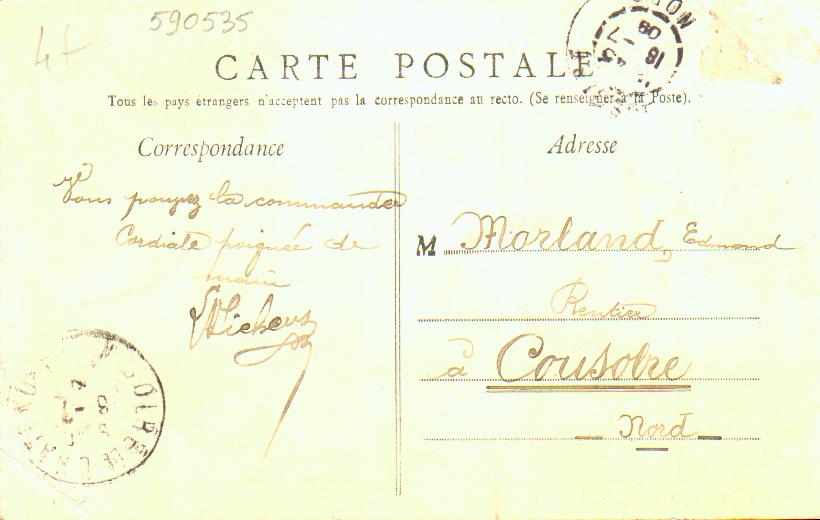 590535
4f
CARTE POSTALE
Tous les pays étrangers n'acceptent pas la correspondance au recto. (Se renseigner à la Poste).
Correspondance
Vous pouvez la commander
Cordiale poignée de
main
Adresse
M Morland, Edmond
Rentier
à Cousolre
Nord